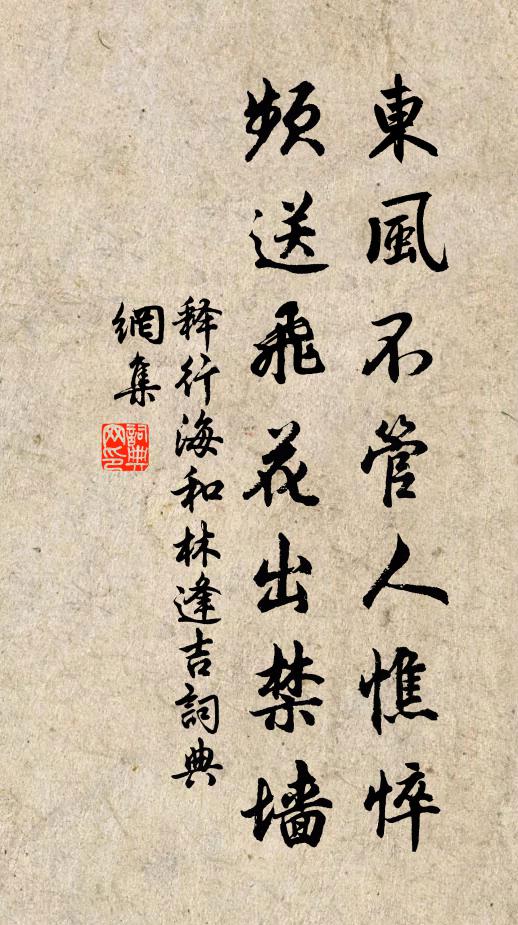 東風不管人憔悴
頻送飛花出禁墙
释行海和林逢吉詞典
網集
詞典网印